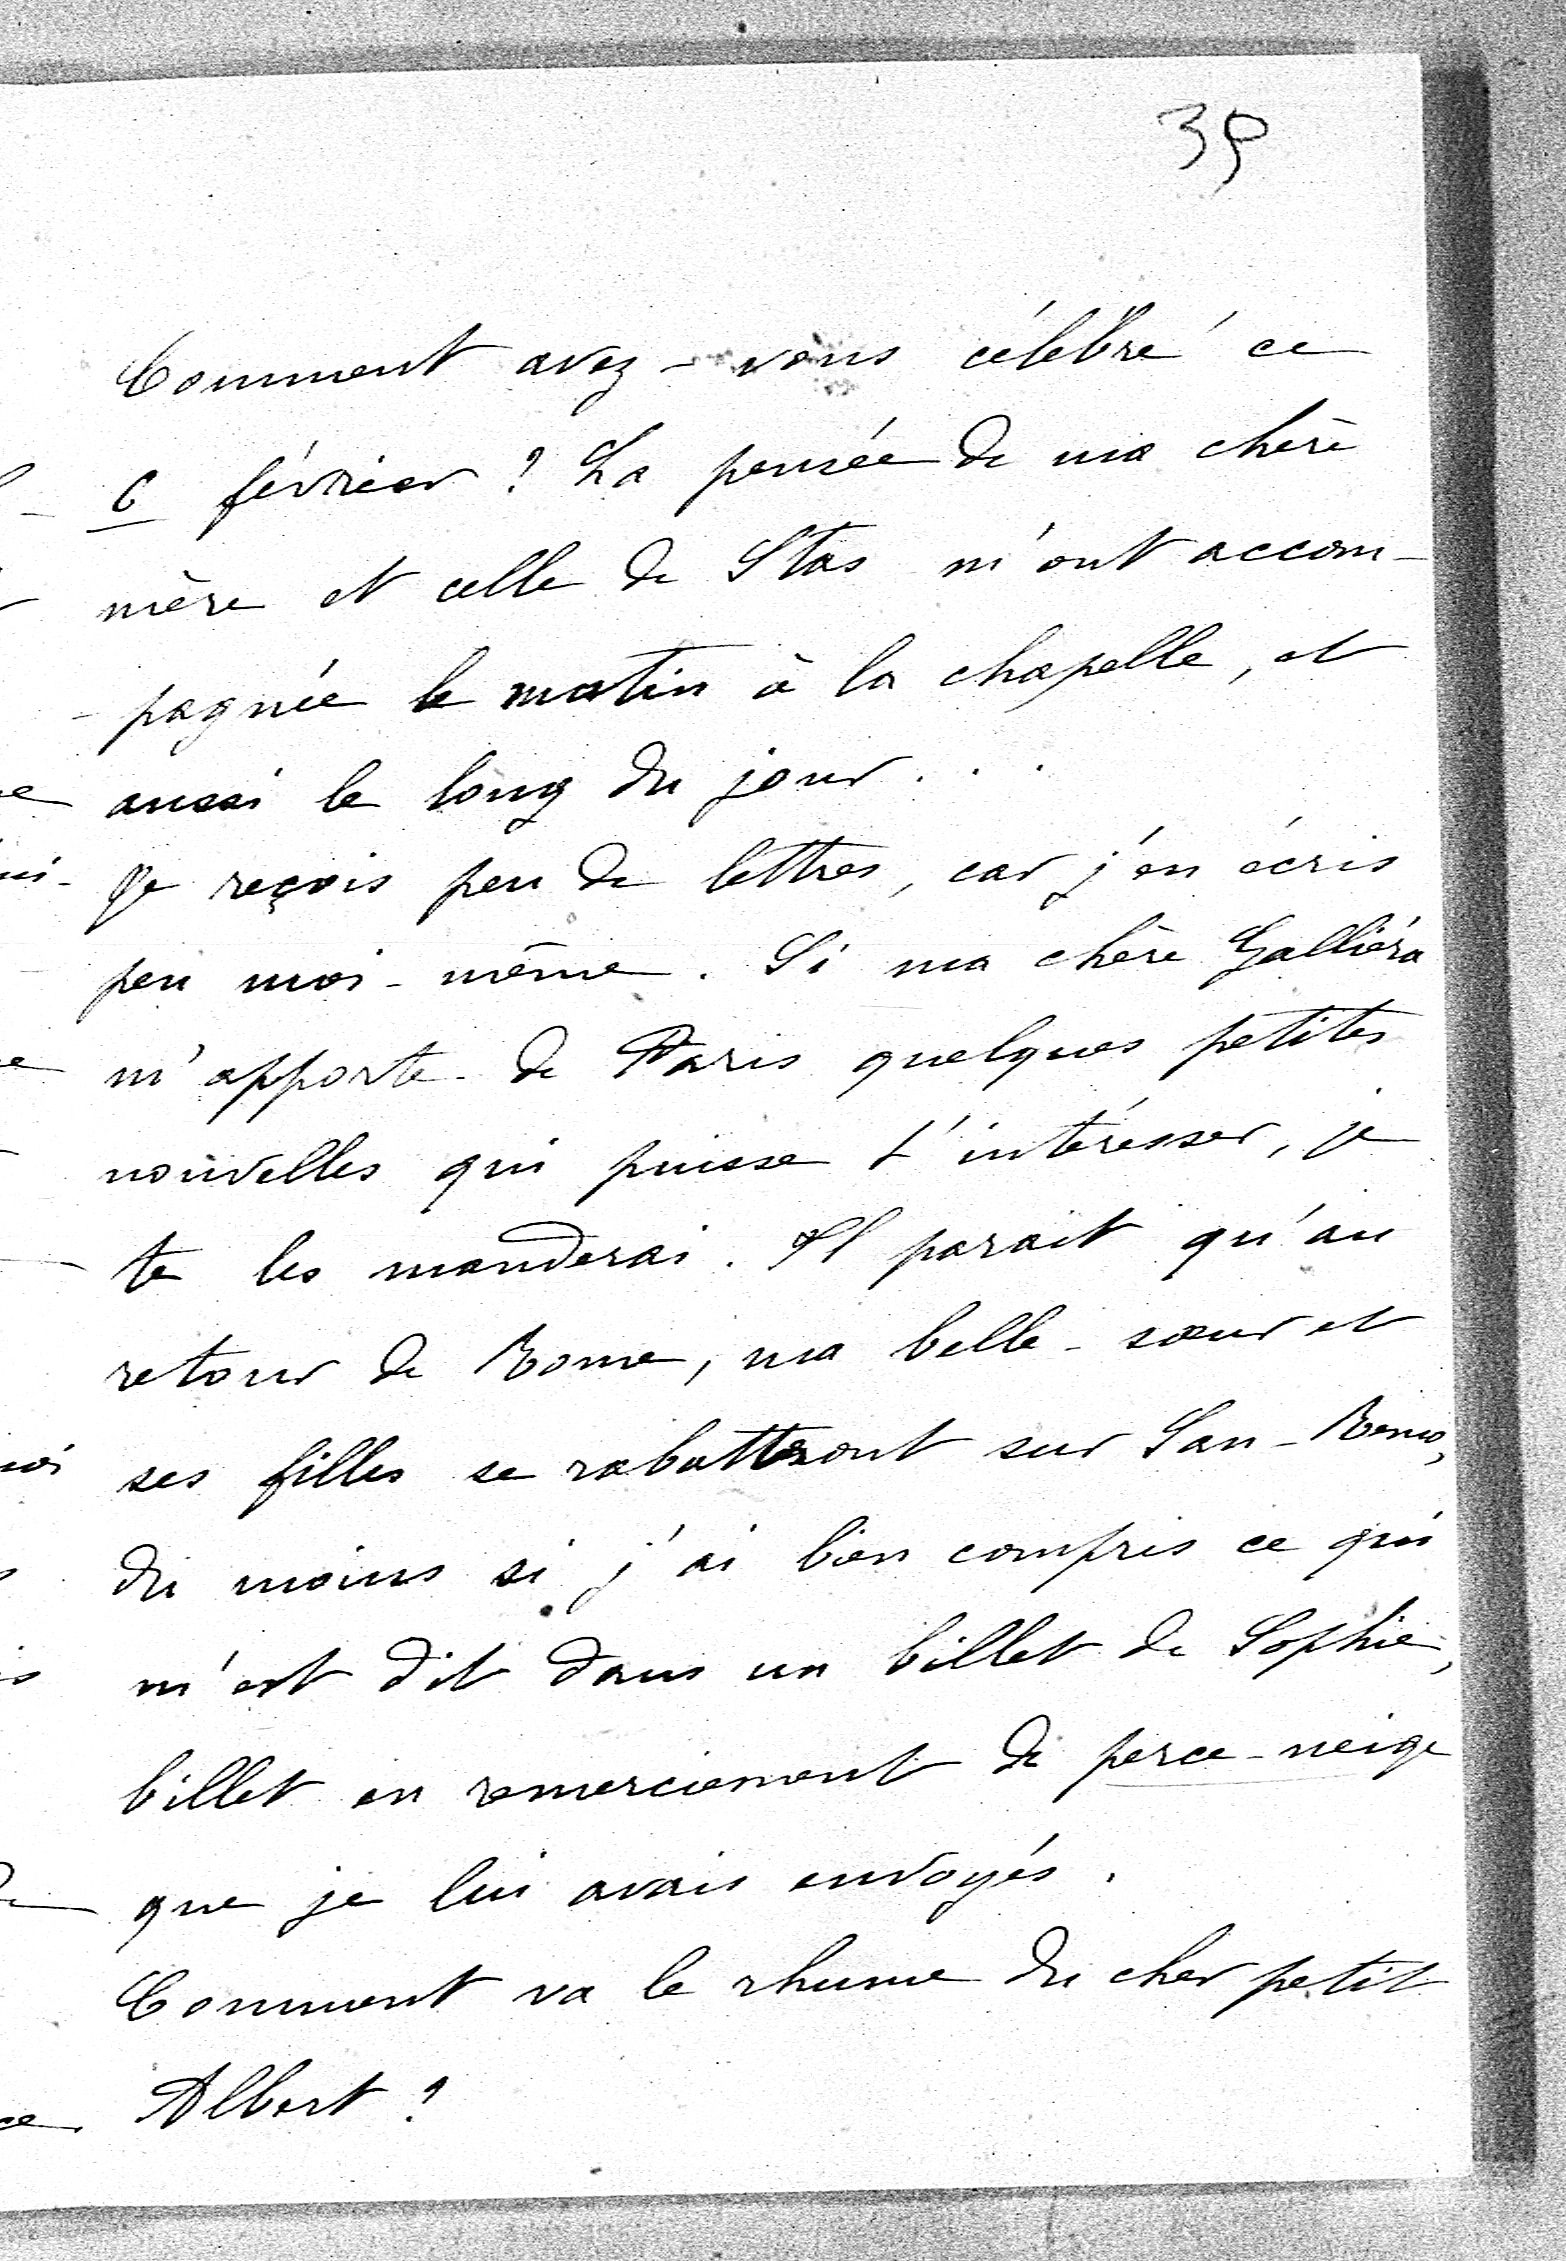 39
Comment avez-vous célébré ce
6 février ? La pensée de ma chère
mère et celle de Stas m'ont accom-
pagnée le matin à la chapelle, et
aussi le long du jour...
Je reçois peu de lettres, car j'en écris
peu moi-même. Si ma chère Galliéra
m'apporte de Paris quelques petites
nouvelles qui puisse t'intéresser, je
te les manderai. Il parait qu'au
retour de Rome, ma belle-sœur et
ses filles se rabatteront sur San-Remo,
du moins si j'ai bien compris ce qui
m'est dit dans un billet de Sophie,
billet en remerciement de perce-neige
que je lui avais envoyés.
Comment va le rhume du cher petit
Albert ?